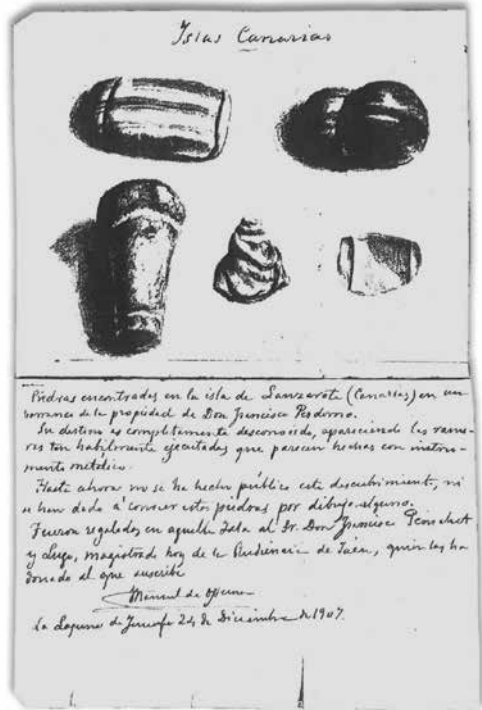 Islas Canarias
Piedras encontradas en la isla de Lanzarote (Canarias) en un
barranco de la propiedad de Don Francisco
Su destino es completamente desconocido, apareciendo las
tan habilmente ejecutadas que parecen hechas con instru-
mento metálico.
Hasta ahora no se ha hecho público este descubrimiento, ni
se han dado á conocer estas piedras por dibujo alguno.
Fueron regaladas en aquella Isla al Sr. Don Francisco
y Lugo, magistrado hoy de la Audiencia de Jaén, quien las ha
donado al que suscribe
Manuel de Ossuna
La Laguna de Tenerife 24 de Diciembre de 1907.